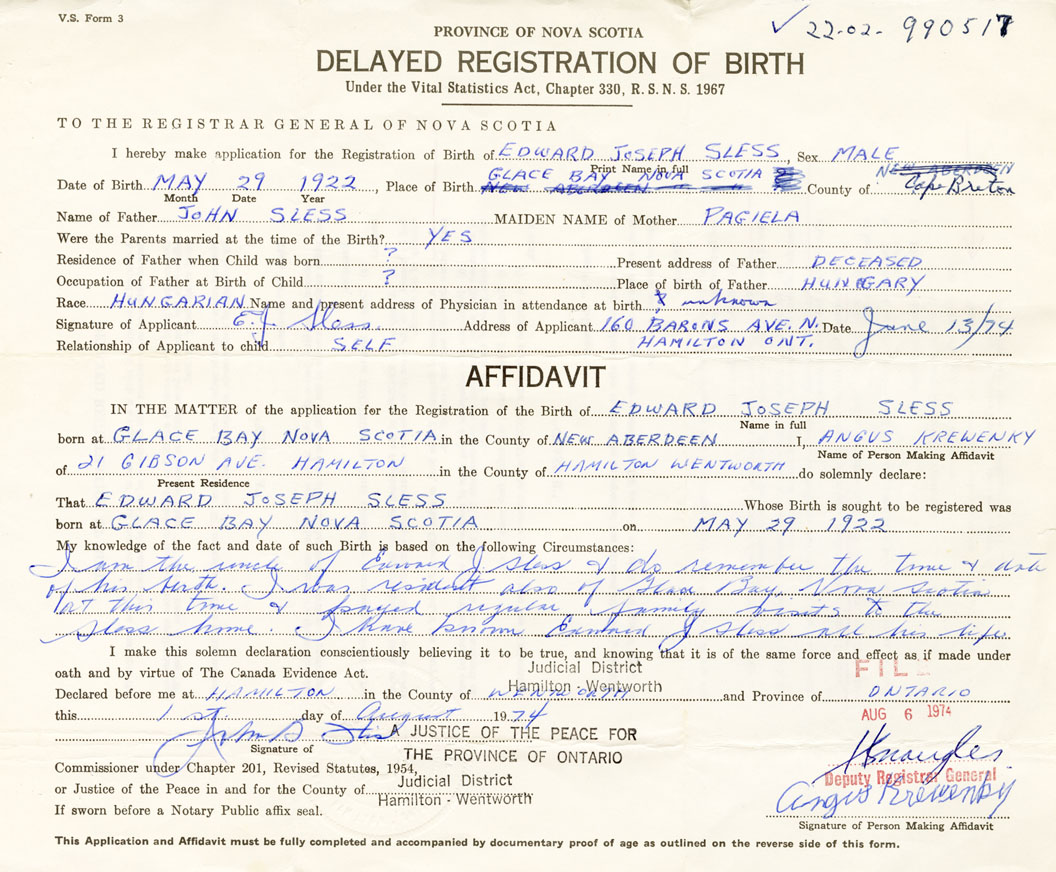 V.S. Form 3
✓ 22-02- 990517
PROVINCE OF NOVA SCOTIA
DELAYED REGISTRATION OF BIRTH
Under the Vital Statistics Act, Chapter 330, R.S.N.S. 1967
TO THE REGISTRAR GENERAL OF NOVA SCOTIA
I hereby make application for the Registration of Birth of EDWARD JOSEPH SLESS, Sex MALE
Print Name in full
GLACE BAY NOVA SCOTIA NEW ABERDEEN
Date of Birth MAY 29 1922, Place of Birth NEW ABERDEEN County of Cape Breton
Month Date Year
Name of Father JOHN SLESS MAIDEN NAME of Mother PAGIELA
Were the Parents married at the time of the Birth? YES
Residence of Father when Child was born ? Present address of Father DECEASED
Occupation of Father at Birth of Child ? Place of birth of Father HUNGARY
Race HUNGARIAN Name and present address of Physician in attendance at birth ? unknown
Signature of Applicant E.J. Sless. Address of Applicant 160 BARONS AVE. N. Date June 13/74
Relationship of Applicant to child SELF HAMILTON ONT.
AFFIDAVIT
IN THE MATTER of the application for the Registration of the Birth of EDWARD JOSEPH SLESS
Name in full
born at GLACE BAY NOVA SCOTIA in the County of NEW ABERDEEN I, ANGUS KREWENKY
Name of Person Making Affidavit
of 21 GIBSON AVE. HAMILTON in the County of HAMILTON WENTWORTH do solemnly declare:
Present Residence
That EDWARD JOSEPH SLESS Whose Birth is sought to be registered was
born at GLACE BAY NOVA SCOTIA on MAY 29 1922
My knowledge of the fact and date of such Birth is based on the following Circumstances:
I am the uncle of Edward J Sless & do remember the time & date
of his birth. I was resident also of Glace Bay, Nova Scotia
at this time & payed regular family visits to the
Sless home. I have known Edward J Sless all his life.
I make this solemn declaration conscientiously believing it to be true, and knowing that it is of the same force and effect as if made under
oath and by virtue of The Canada Evidence Act.
Judicial District
Hamilton - Wentworth
FILED
Declared before me at HAMILTON in the County of WENTWORTH and Province of ONTARIO
this 1st. day of August 1974
AUG 6 1974
A JUSTICE OF THE PEACE FOR
THE PROVINCE OF ONTARIO
Signature of
Commissioner under Chapter 201, Revised Statutes, 1954,
or Justice of the Peace in and for the County of
Judicial District
Hamilton - Wentworth
Deputy Registrar General
If sworn before a Notary Public affix seal.
Angus Krewenky
Signature of Person Making Affidavit
This Application and Affidavit must be fully completed and accompanied by documentary proof of age as outlined on the reverse side of this form.